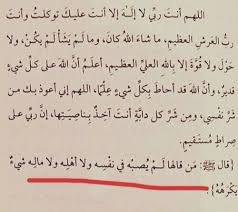 اللهم أنتَ ربِّي لا إلٰهَ إلا أنتَ عليكَ توكلتُ وأنتَ
ربُّ العرشِ العظيمِ، ما شاءَ اللهُ كانَ، وما لَمْ يَشَأْ لَمْ يكُنْ، ولا
حَوْلَ ولا قُوَّةَ إلا باللهِ العليِّ العظيمِ، أعلَمُ أنَّ اللهَ على كلِّ شيءٍ
قديرٌ، وأنَّ اللهَ قد أحاطَ بكلِّ شيءٍ عِلْمًا، اللهم إني أعوذ بك من
شرِّ نفسي، ومِن شَرِّ كل دابَّةٍ أنتَ آخِذٌ بِنَاصِيَتِها، إنَّ ربِّي على
صِراطٍ مُستَقِيمٍ.
(قال ﷺ: مَن قالها لَمْ يُصِبْهُ في نفسِه ولا أهْلِه ولا مالِه شيءٌ
يَكْرَهُهُ).